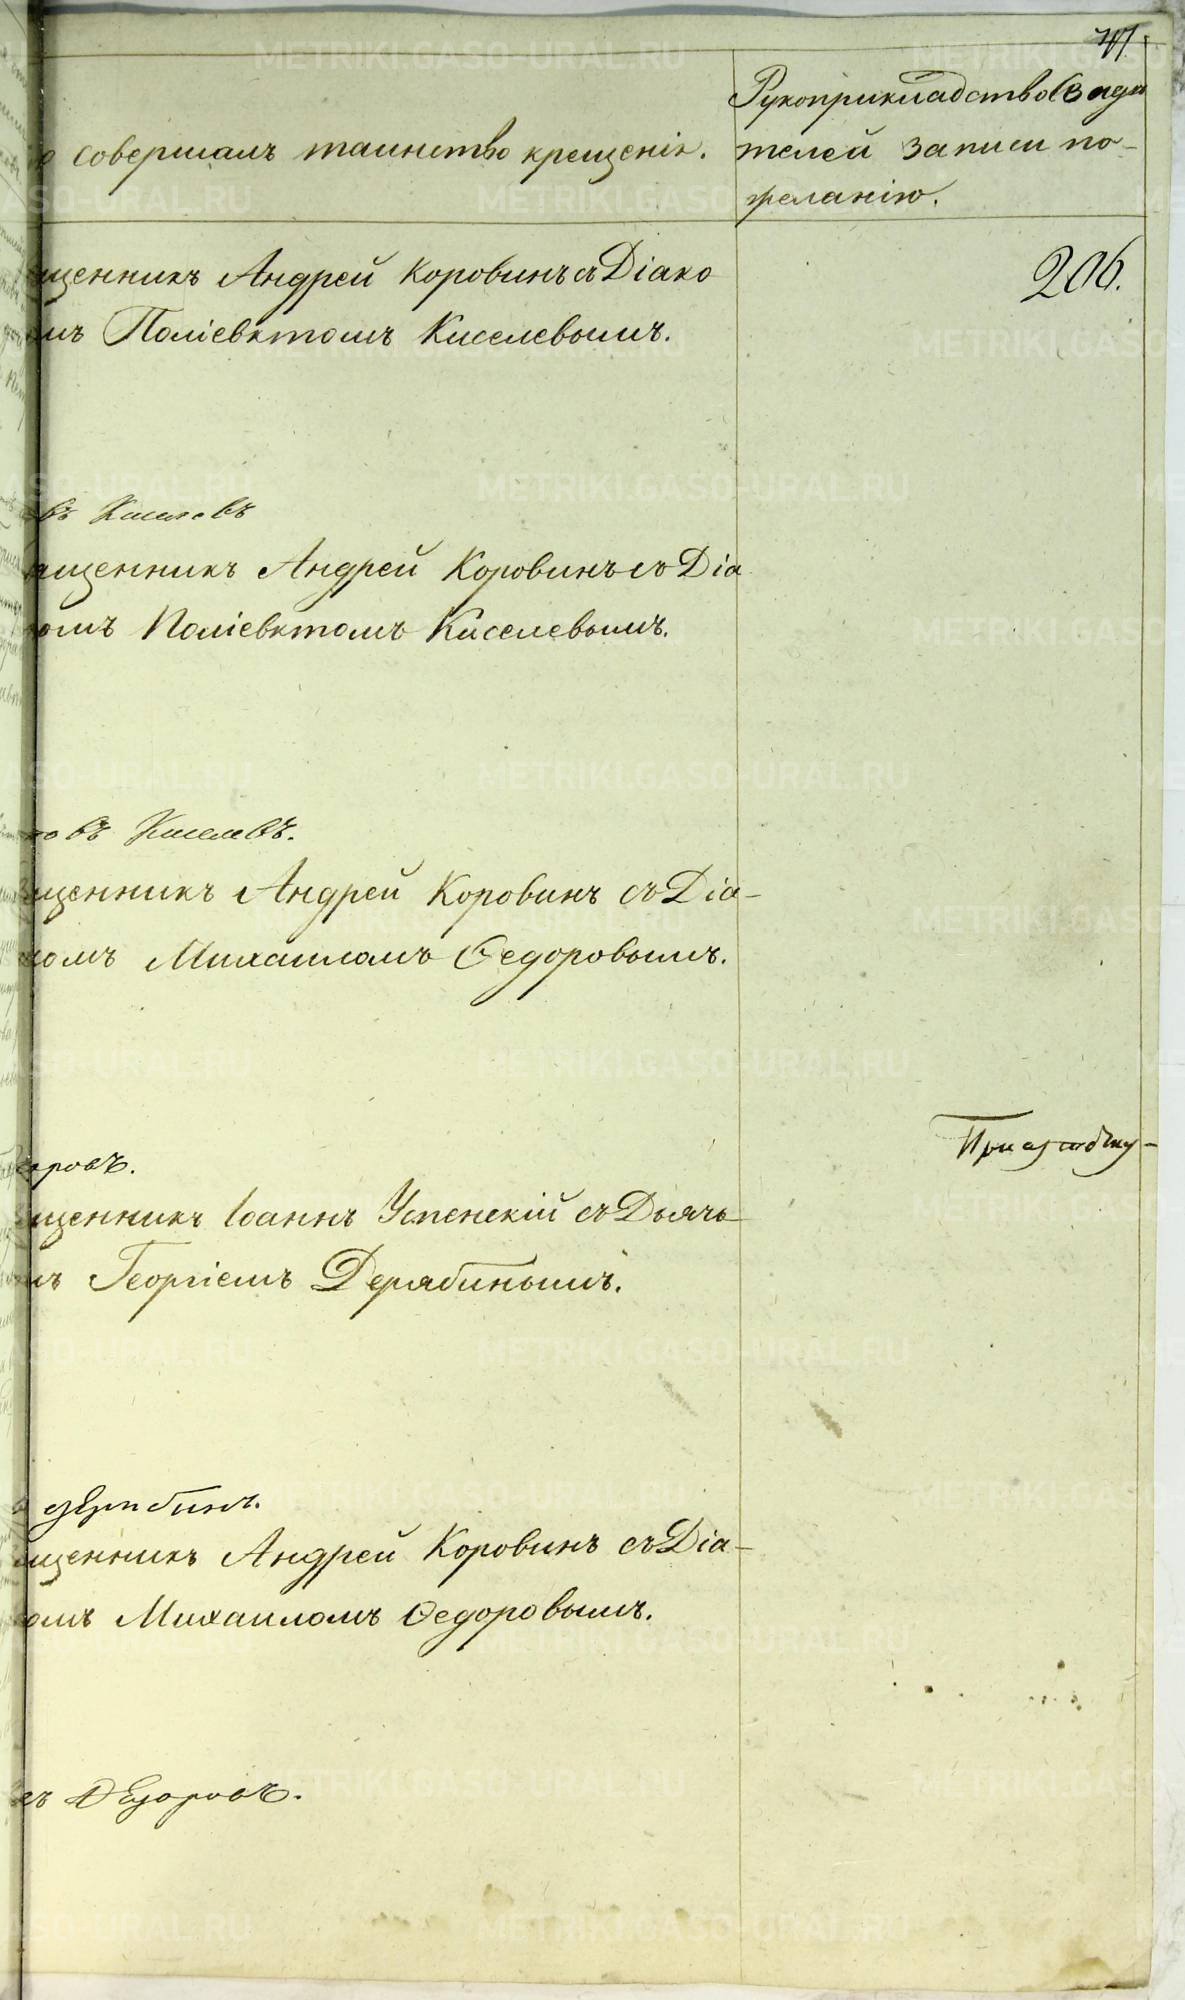 Рукоприкладство свидѣ
совершалъ таинство крещенія.
телей записи по
желанію.
206.
щенникъ Андрей Коровинъ съ Діако
мъ Поліевктомъ Киселевымъ.
въ Киселевъ
ященникъ Андрей Коровинъ съ Діа
омъ Поліевктомъ Киселевымъ.
въ Киселевъ.
щенникъ Андрей Коровинъ съ Діа-
комъ Михаиломъ Ѳедоровымъ.
доровъ.
щенникъ Іоаннъ Успенскій съ Дьяч
мъ Георгіемъ Дерябинымъ.
Дерябинъ.
щенникъ Андрей Коровинъ съ Діа-
омъ Михаиломъ Ѳедоровымъ.
ъ Ѳедоровъ.
METRIKI.GASO-URAL.RU